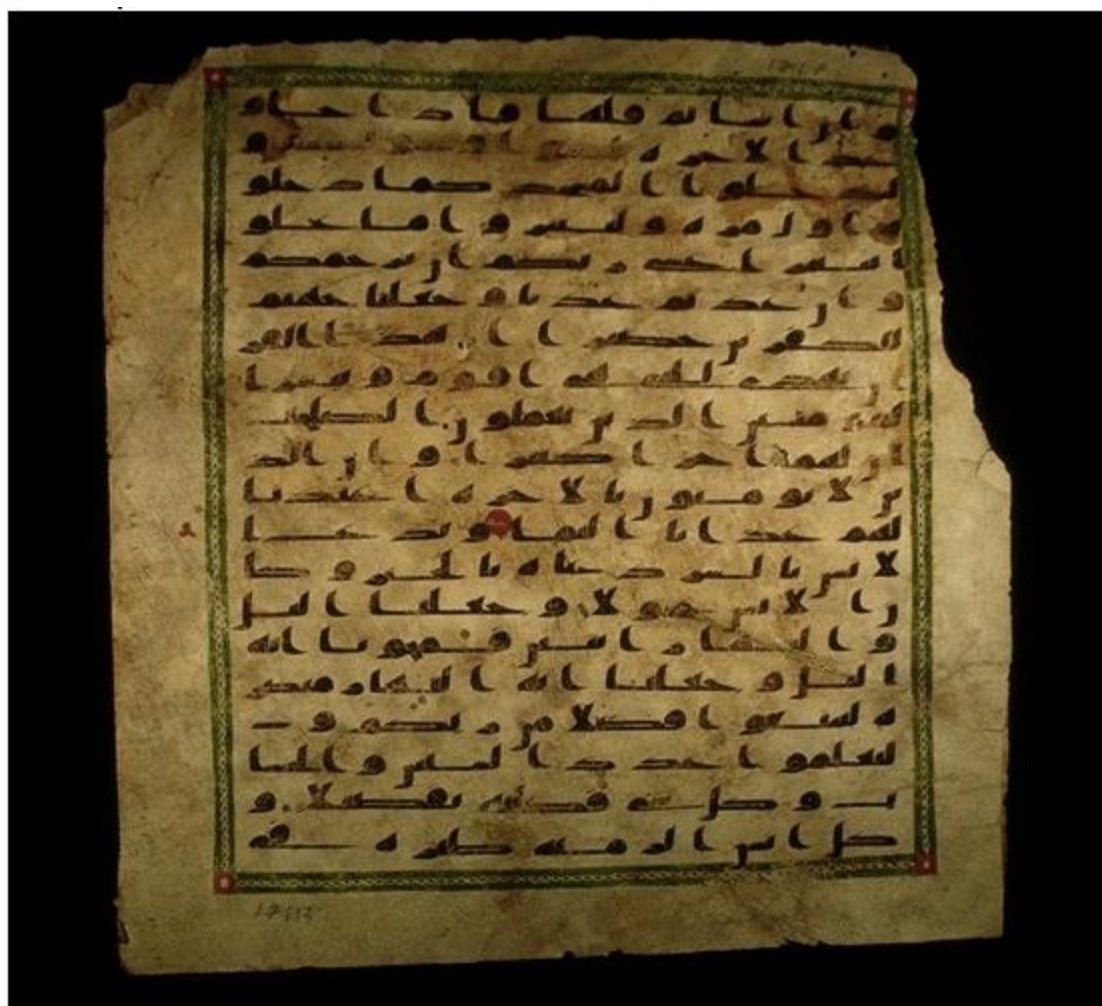 وان اساتم فلها فاذا جاو
عد الاخره ليسوا وجوهكم و
ليدخلوا المسجد كما دخلو
ه اول مره وليتبروا ما علو
ا تتبيرا عسى ربكم ان يرحمكم
وان عدتم عدنا وجعلنا جهنم
للكفرين حصيرا ان هذا القر
ان يهدي للتي هي اقوم ويبشر ا
لمومنين الذين يعملون الصلحت
ان لهم اجرا كبيرا وان الذ
ين لا يومنون بالاخره اعتدنا
لهم عذابا اليما ويدع ا
لانسن بالشر دعاه بالخير وكا
ن الانسن عجولا وجعلنا اليل
والنهار ايتين فمحونا ايه
اليل وجعلنا ايه النهار مبصر
ه لتبتغوا فضلا من ربكم و
لتعلموا عدد السنين والحسا
ب وكل شي فصلنه تفصيلا و
كل انسن الزمنه طيره في